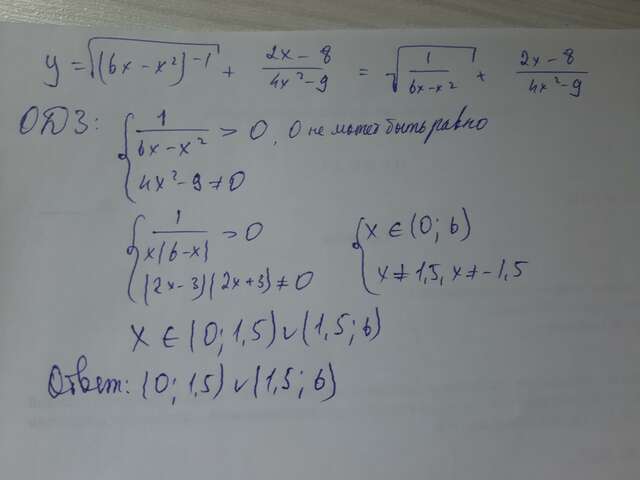 y = √((6x − x²)⁻¹) + (2x − 8)/(4x² − 9) = √(1/(6x − x²)) + (2x − 8)/(4x² − 9)
ОДЗ: { 1/(6x − x²) > 0, 0 не может быть равно
4x² − 9 ≠ 0
{ 1/(x(6 − x)) > 0
(2x − 3)(2x + 3) ≠ 0
{ x ∈ (0; 6)
x ≠ 1,5, x ≠ −1,5
x ∈ (0; 1,5) ∪ (1,5; 6)
Ответ: (0; 1,5) ∪ (1,5; 6)